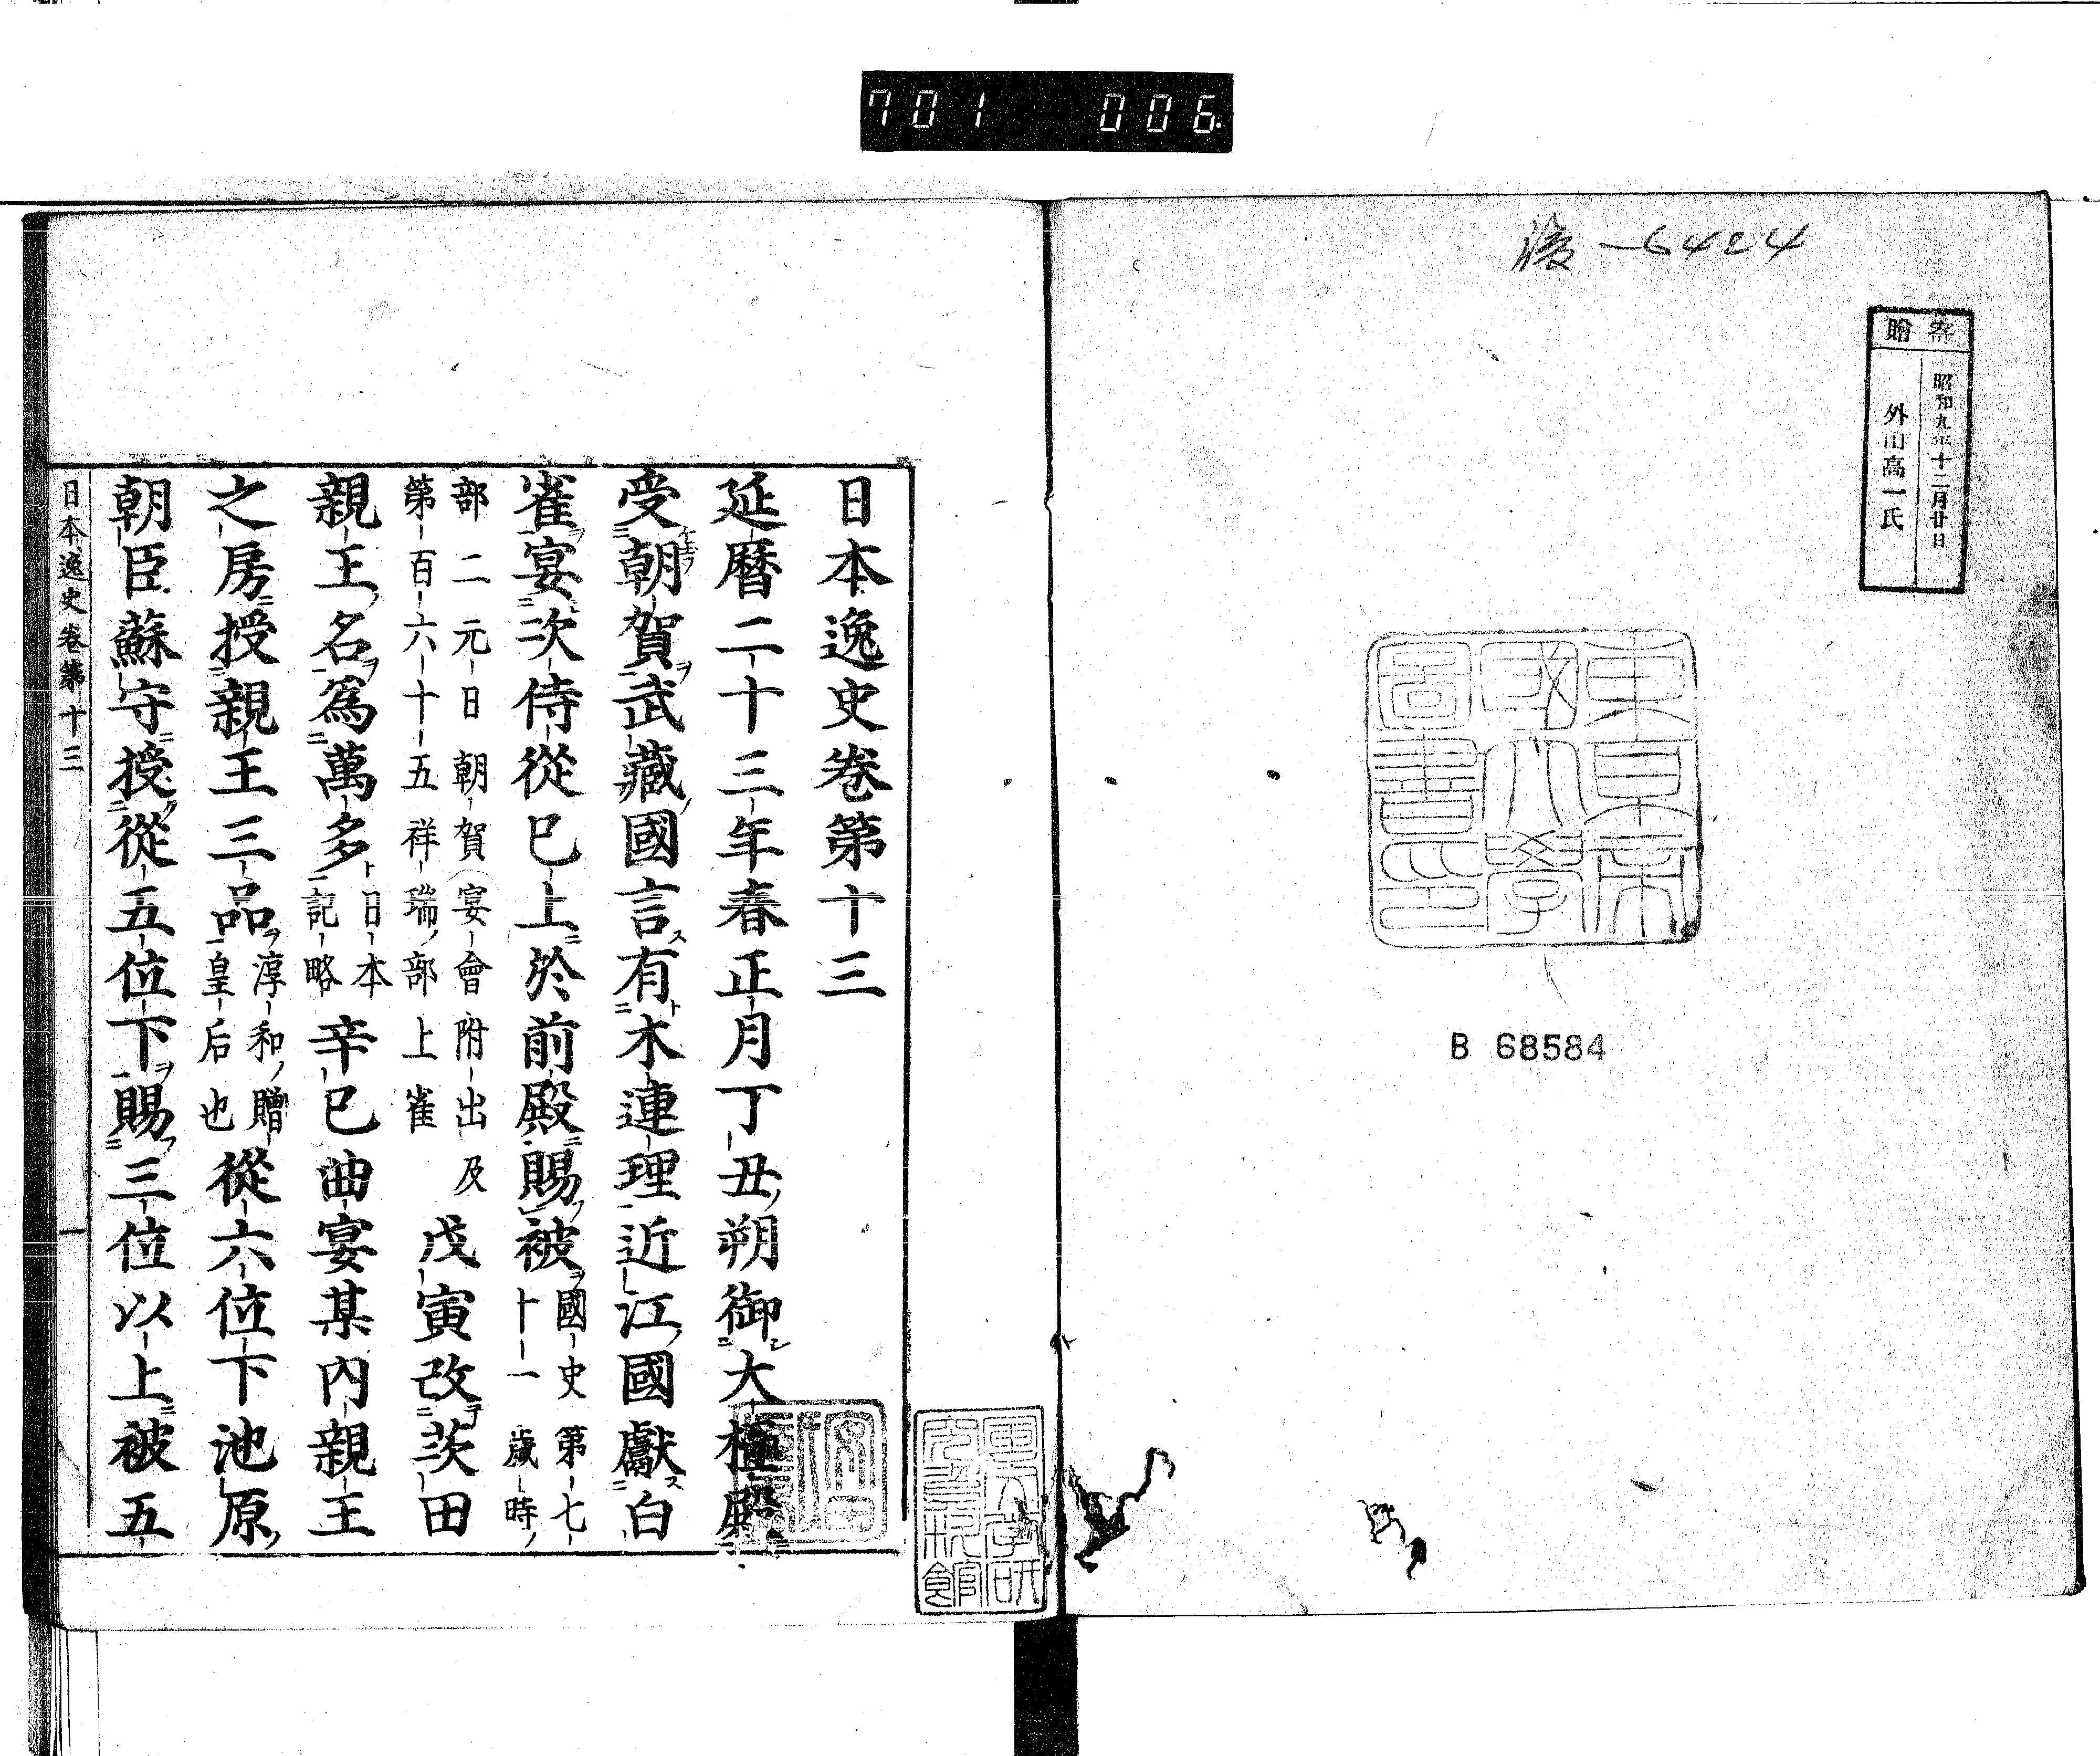 701 006
後-6424
寄贈
昭和九年十二月廿日
外山高一氏
東京帝
國大學
圖書印
B 68584
日本逸史卷第十三
延暦二十三年春正月丁丑朔御大極殿
受朝賀武藏國言有木連理近江國獻白
雀宴次侍從已上於前殿賜被國史第七
十一歳時
部二元日朝賀宴會附出及
第百六十五祥瑞部上雀
戊寅改茨田
親王名爲萬多日本
記略
辛巳曲宴某内親王
之房授親王三品淳和贈
皇后也
從六位下池原
朝臣蘇守授從五位下賜三位以上被五
日本逸史卷第十三
一